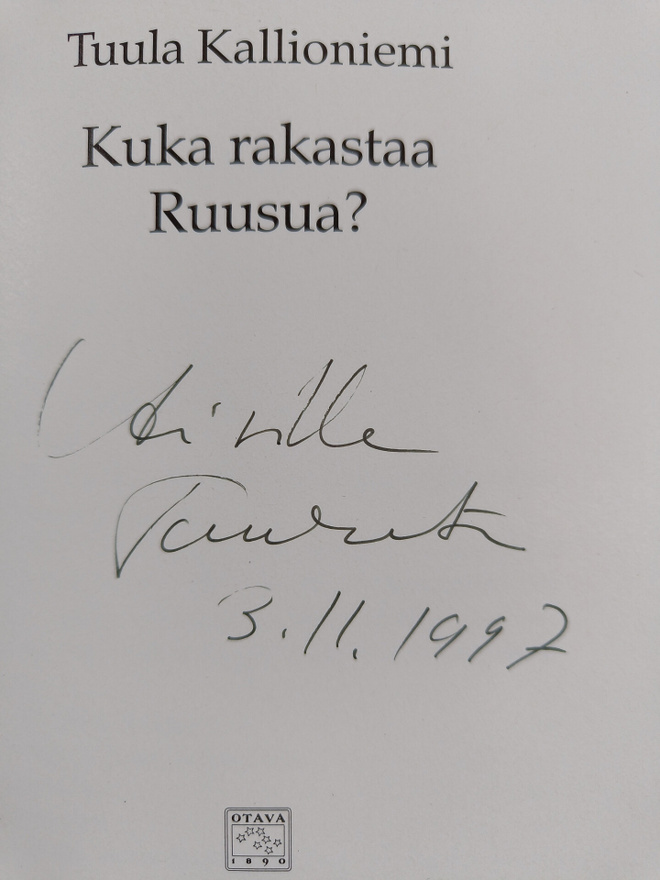 Tuula Kallioniemi
Kuka rakastaa
Ruusua?
3.11.1997
OTAVA
1890